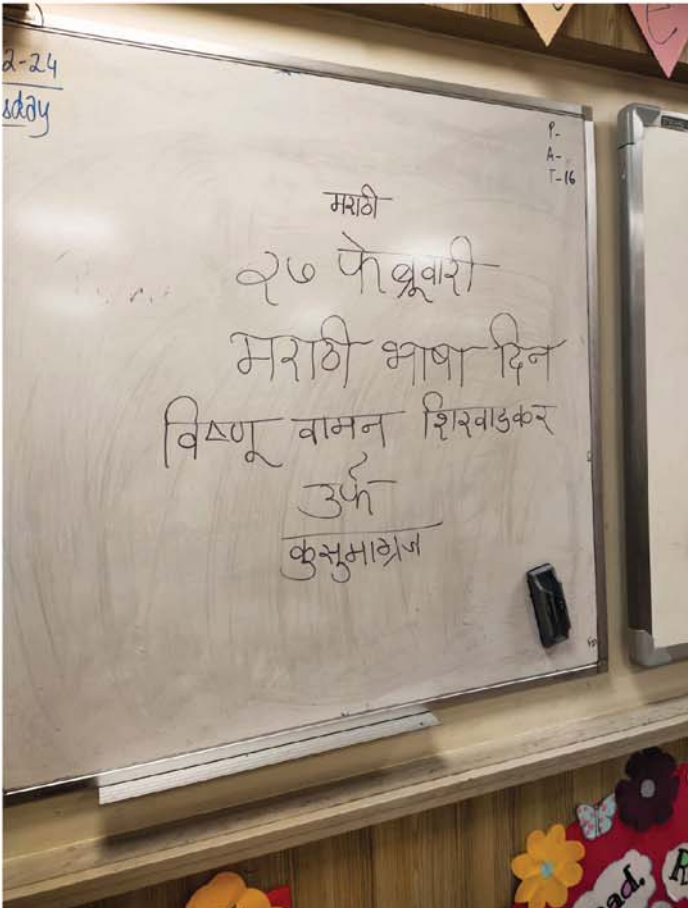 2-24
sday
P-
A-
T-16
मराठी
२७ फेब्रूवारी
मराठी भाषा दिन
विष्णू वामन शिरवाडकर
उर्फ
कुसुमाग्रज